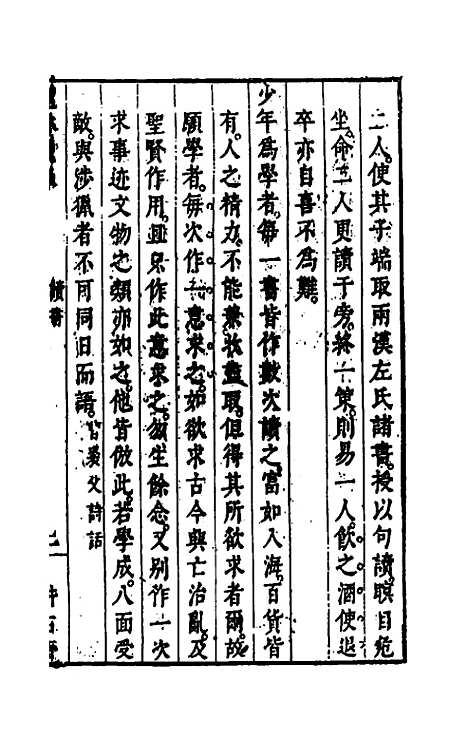 二人。使其子端取兩漢左氏諸書。授以句讀。瞑目危
坐。命二人更讀于旁。終一策。則易一人。飲之酒使退
卒亦自喜不爲難。
少年爲學者。每一書皆作數次讀之。當如入海。百貨皆
有。人之精力。不能兼收盡取。但得其所欲求者爾。故
願學者。每次作一意求之。如欲求古今興亡治亂。及
聖賢作用。且只作此意求之。勿生餘念。又別作一次
求事迹文物之類亦如之。他皆倣此。若學成。八面受
敵。與涉獵者不可同日而語。父詩話
讀書